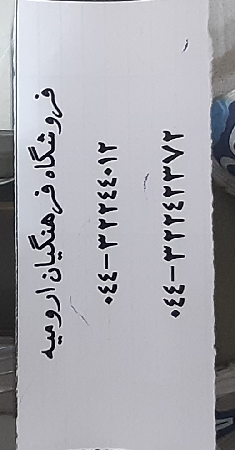 فروشگاه فرهنگیان ارومیه
۰٤٤-۳۲۲٤٤۰۱۲
۰٤٤-۳۲۲٤۲۳۷۲